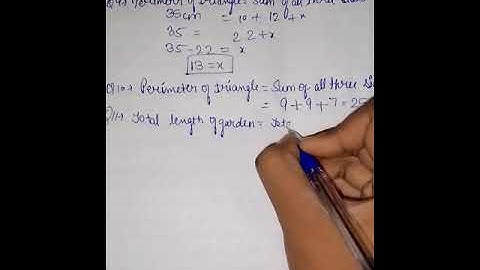 Perimeter of triangle = Sum of all three
35cm = 10 + 12 + x
35 = 22 + x
35-22 = x
13 = x
Q10 → Perimeter of triangle = Sum of all three
= 9 + 9 + 7 = 25
Q11 → Total length of garden =